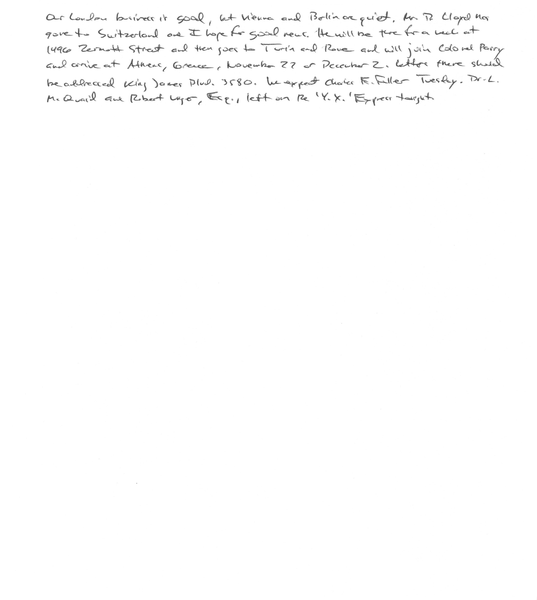 Our London business is good, but Vienna and Berlin are quiet. Mr. D. Lloyd has
gone to Switzerland and I hope for good news. He will be there for a week at
1496 Zermott Street and then goes to Turin and Rome and will join Colonel Parry
and arrive at Athens, Greece, November 27 or December 2. Letters there should
be addressed King James Blvd. 3580. We expect Charles E. Fuller Tuesday. Dr. L.
McQuaid and Robert Unger, Esq., left on the 'Y.X.' Express tonight.